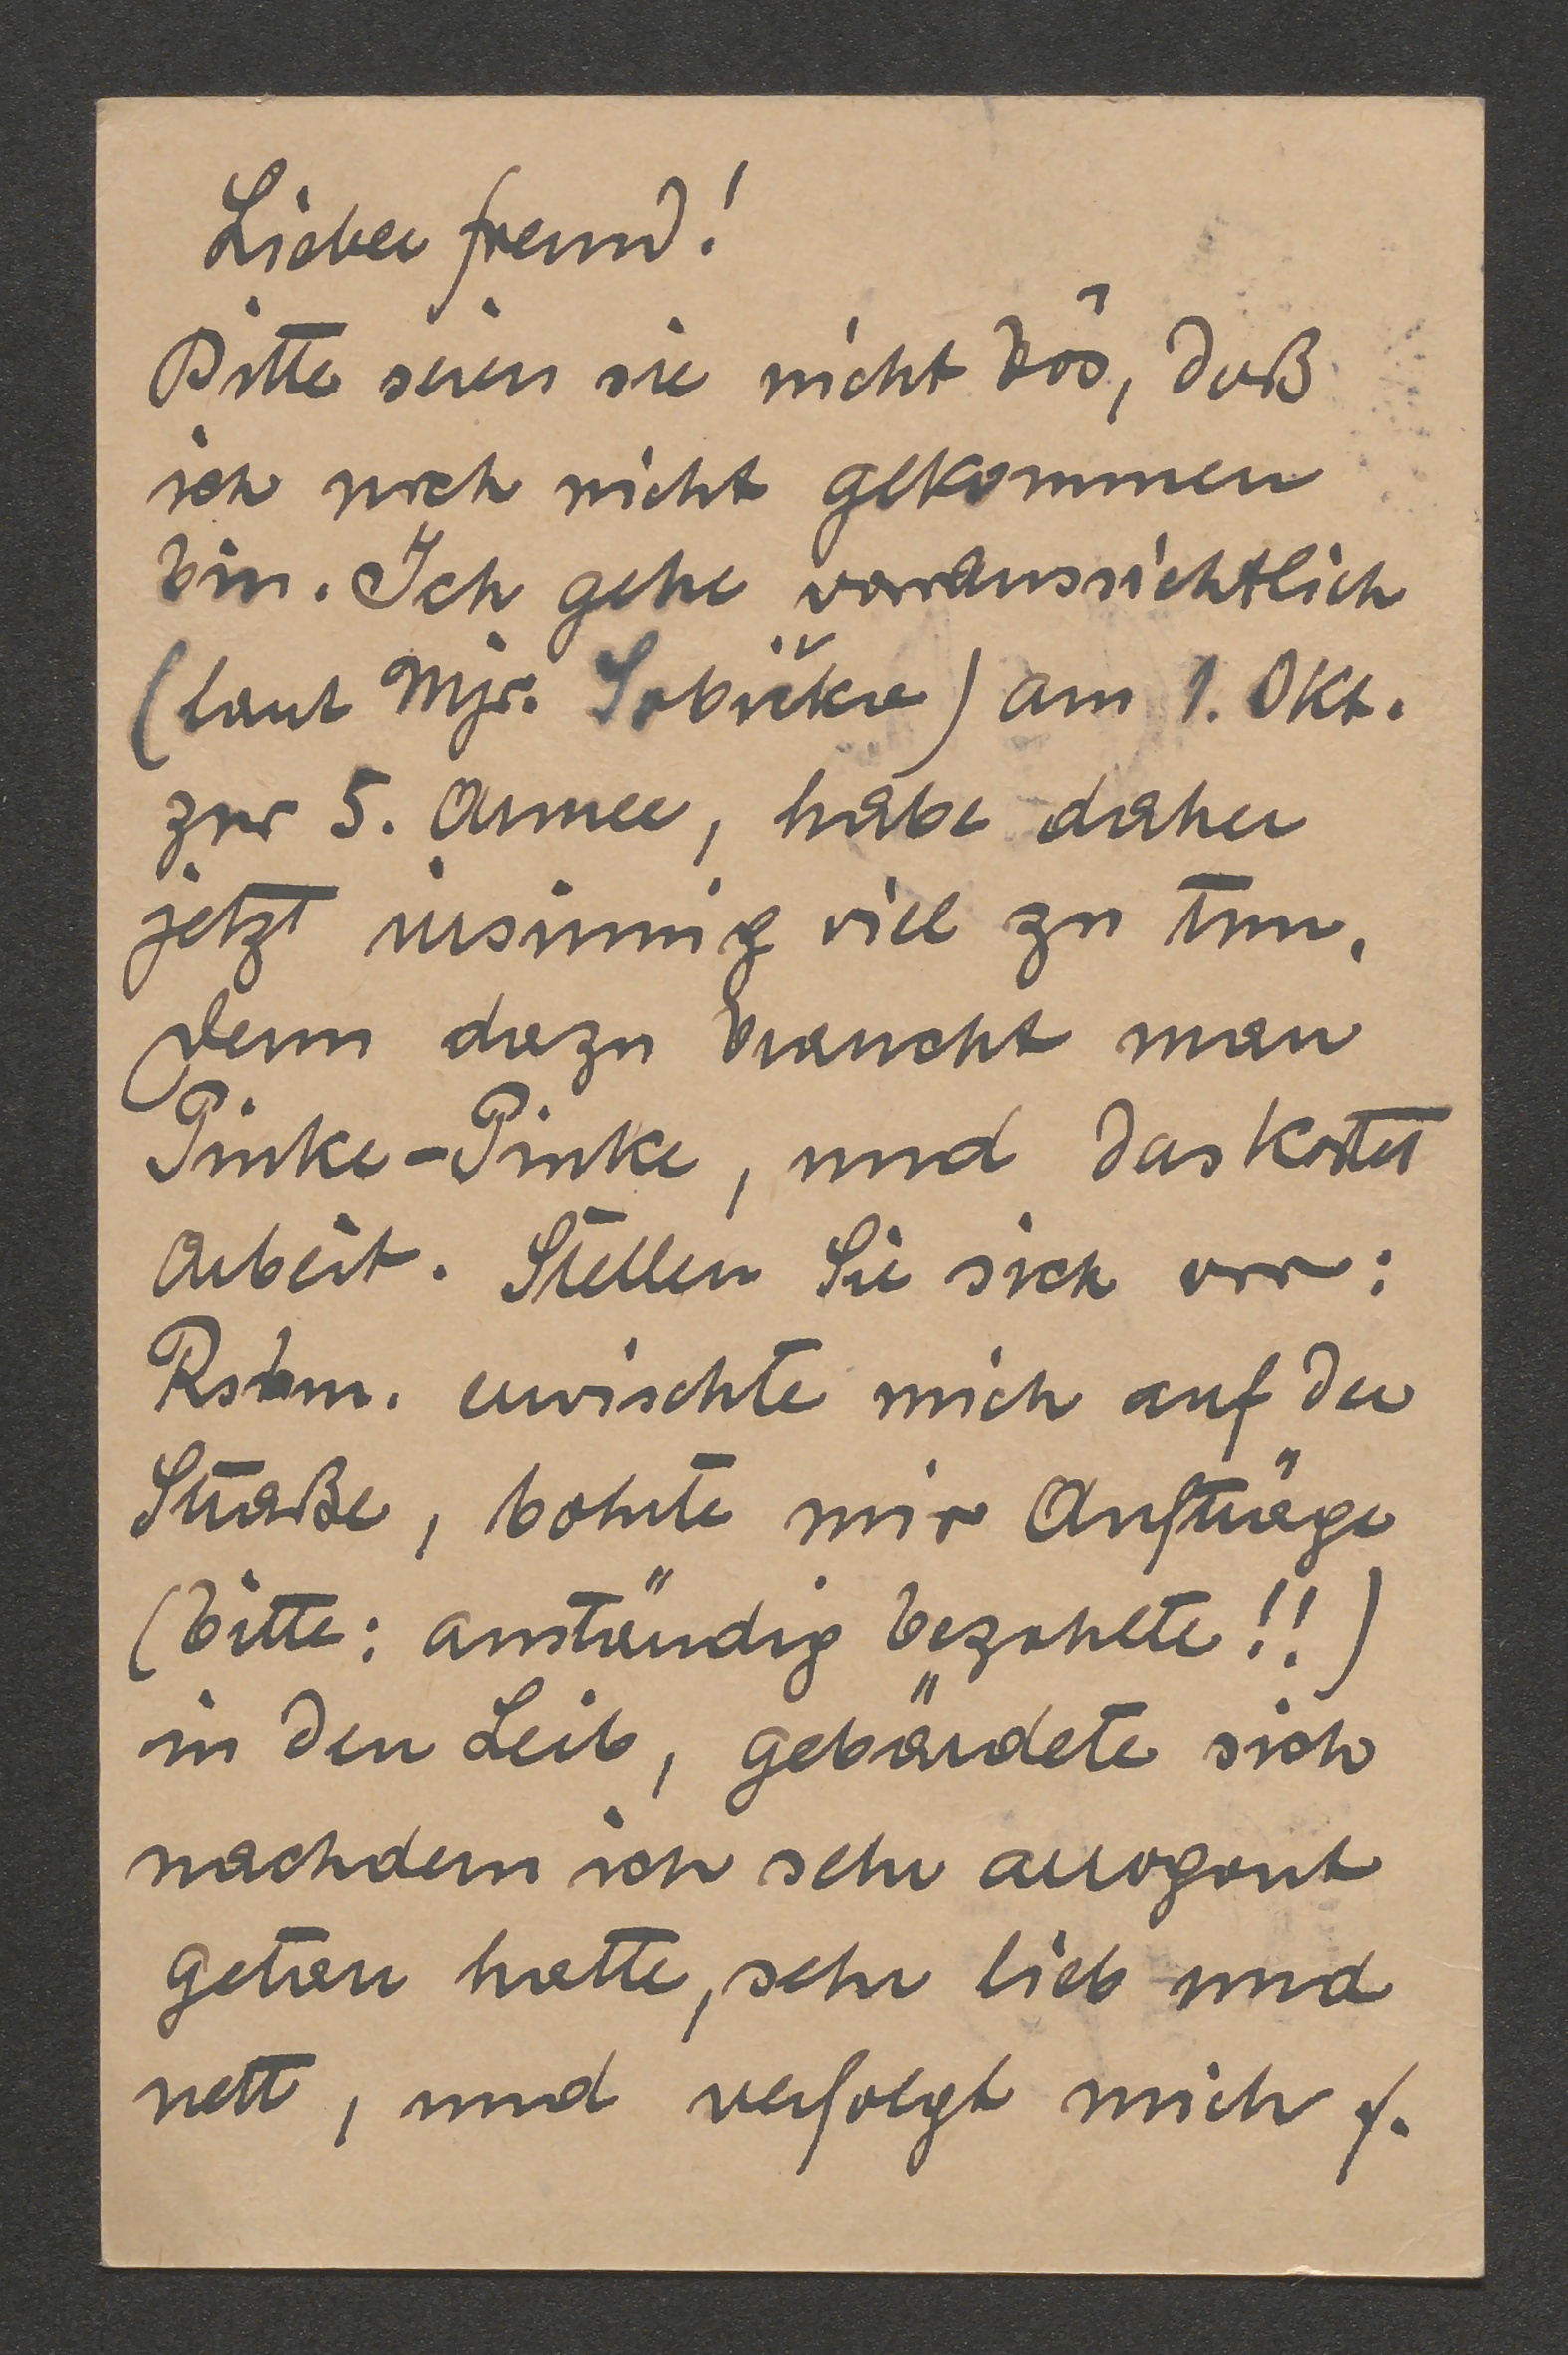 Lieber Freund!
Bitte seien sie nicht bös, daß
ich noch nicht gekommen
bin. Ich gehe vorraussichtlich
(laut Mjr. Sobička) am 1. Okt.
zur 5. Armee, habe daher
jetzt irrsinnig viel zu tun,
denn dazu braucht man
Pinke-Pinke, und das kostet
Arbeit. Stellen Sie sich vor:
erwischte mich auf der
Straße, bohrte mir Aufträge
(bitte: anständig bezahlte!!)
in den Leib, gebärdete sich
nachdem ich sehr arrogant
getan hatte, sehr lieb und
nett, und verfolgt mich